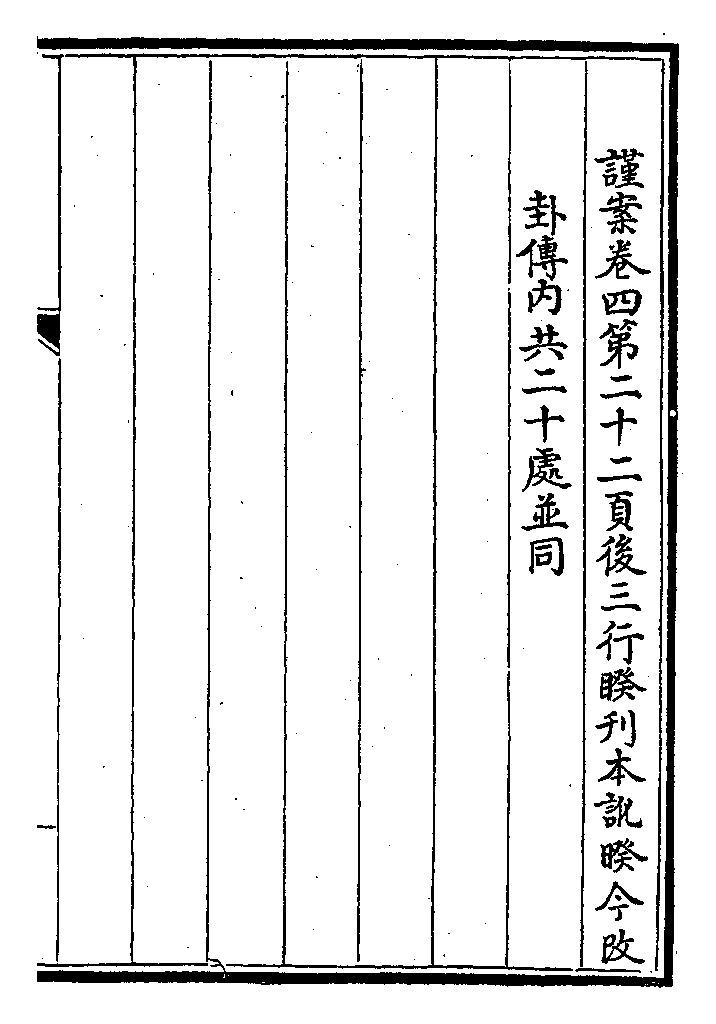 謹案卷四第二十二頁後三行睽刊本訛暌今改
卦傳内共二十處並同